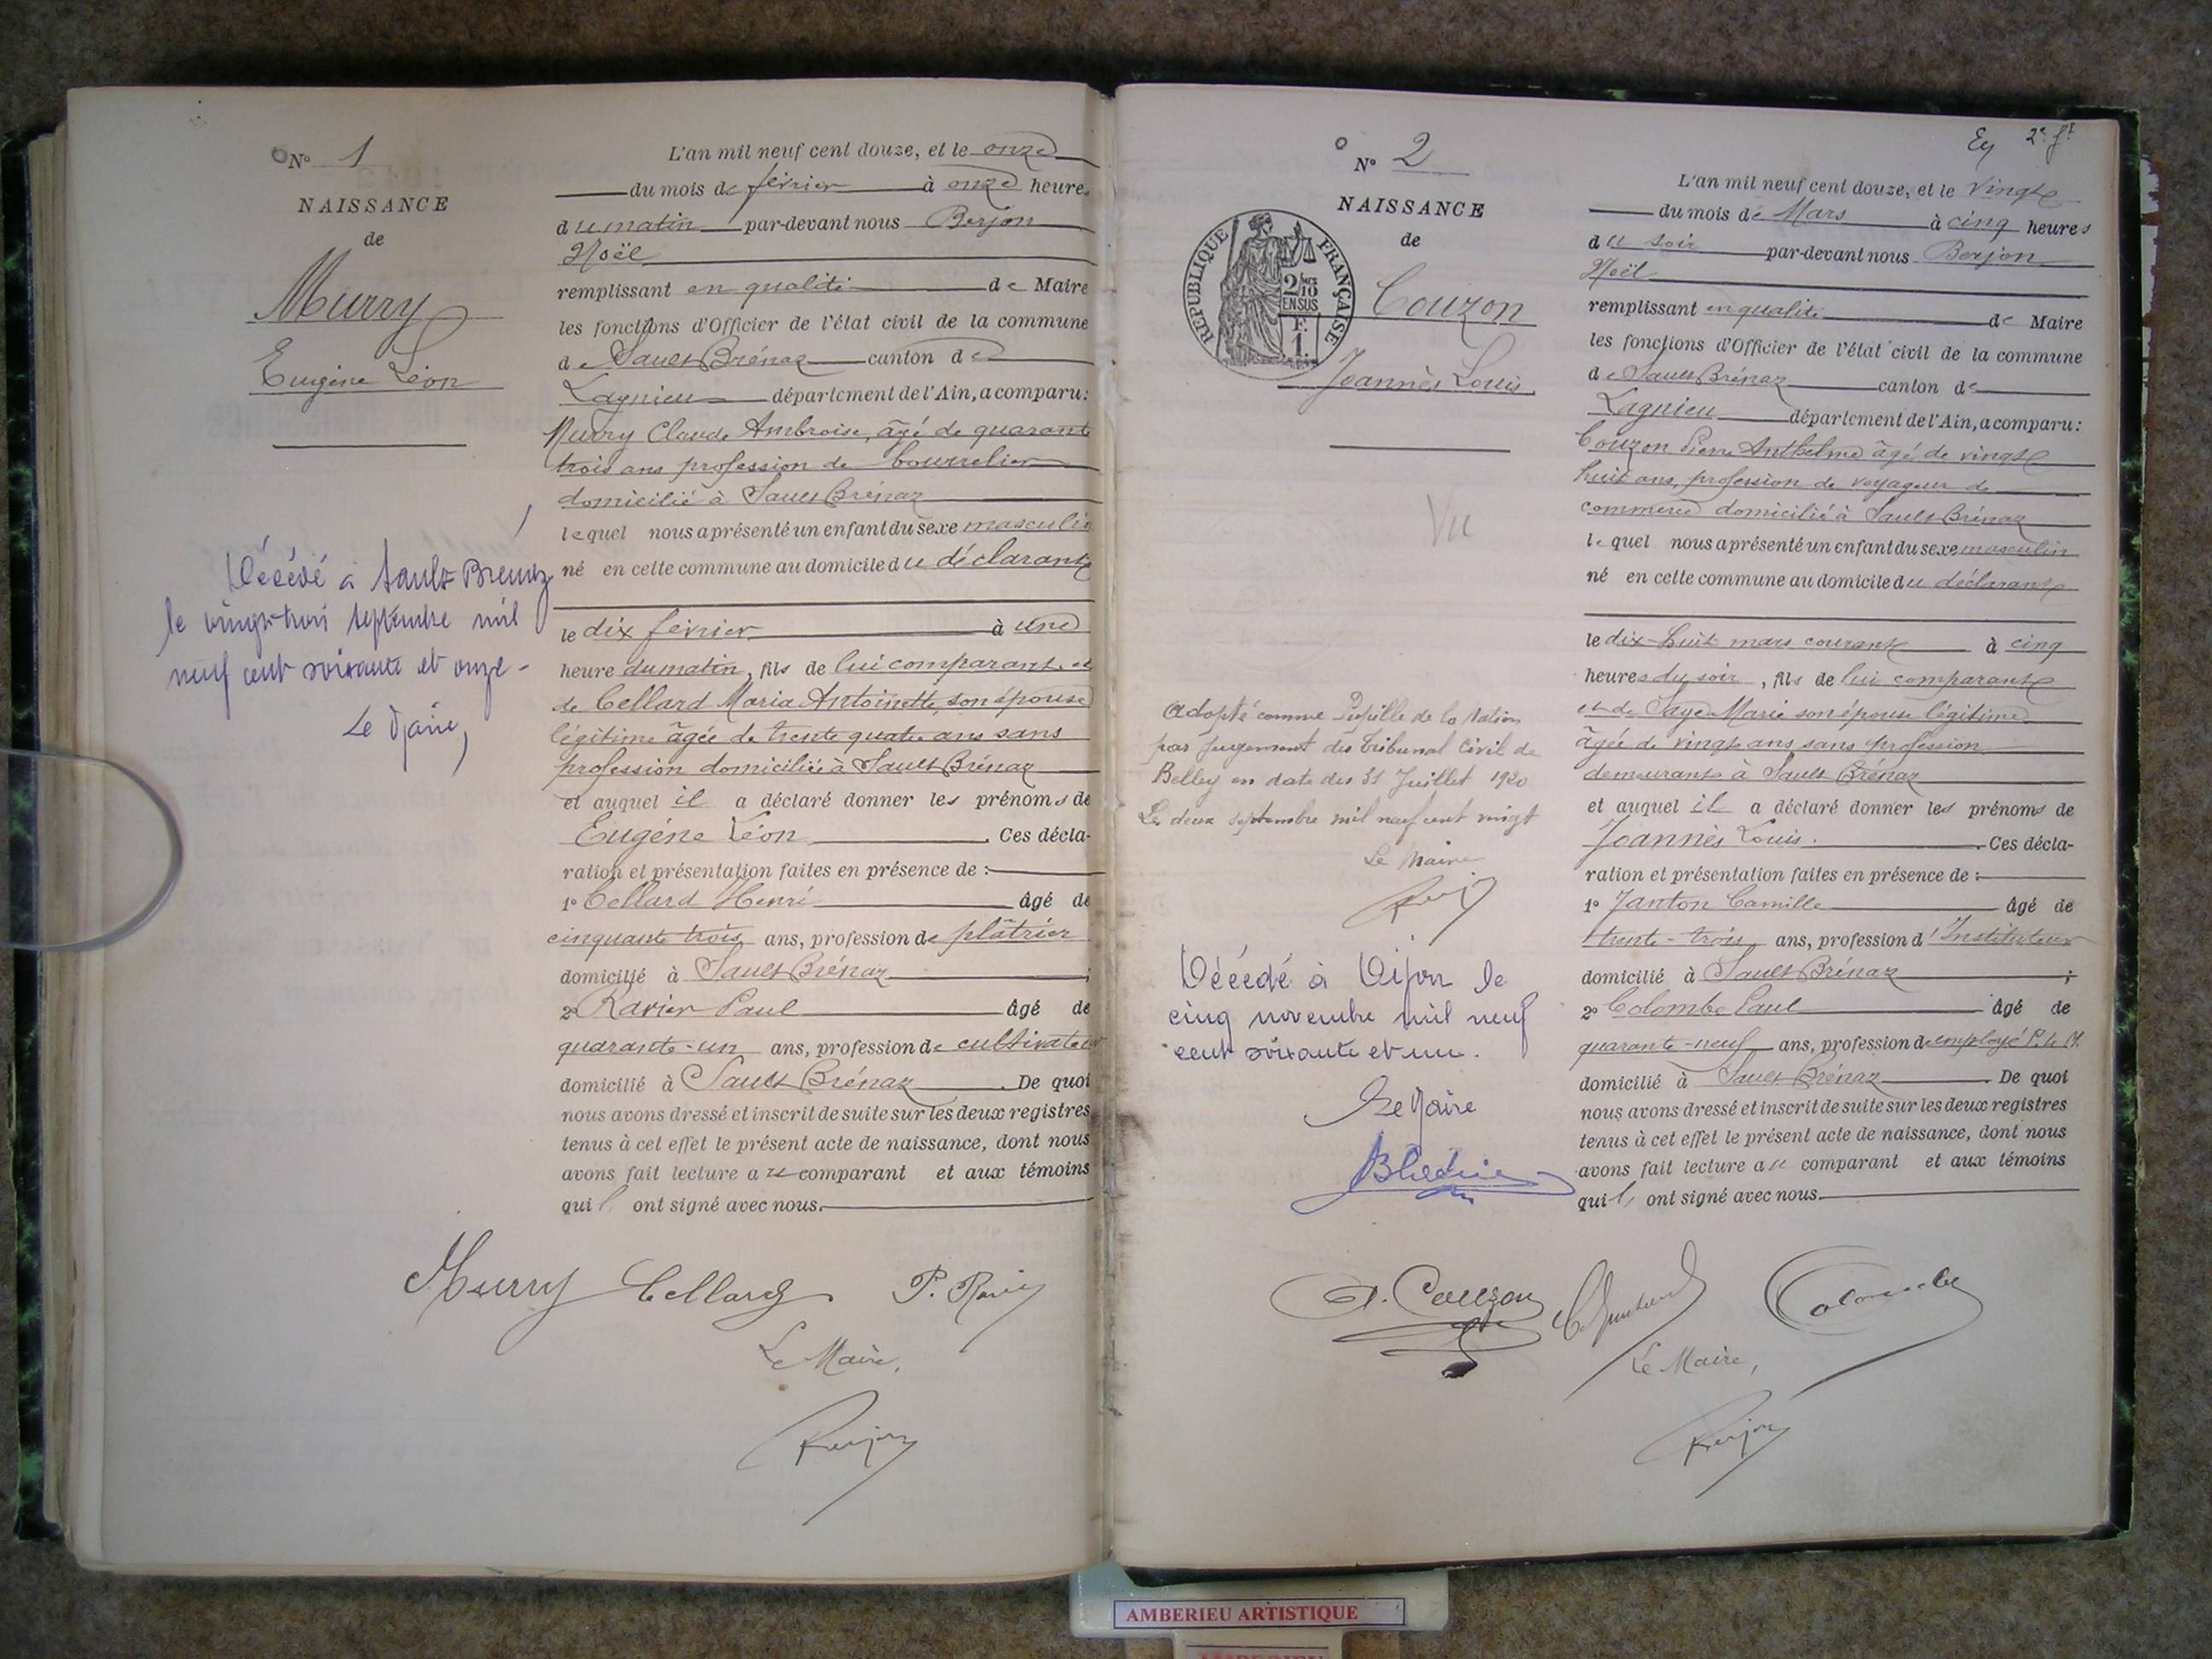 N° 1
NAISSANCE
de
Murry
Eugène Léon
Décédé à Sault-Brenaz
le vingt-trois septembre mil
neuf cent soixante et onze -
Le Maire,
L'an mil neuf cent douze, et le onze
du mois de février à onze heures
du matin par-devant nous Berjon
Noël
remplissant en qualité de Maire
les fonctions d'Officier de l'état civil de la commune
de Sault Brénaz canton de
Lagnieu département de l'Ain, a comparu:
Murry Claude Ambroise, âgé de quarante
trois ans profession de bourrelier
domicilié à Sault Brénaz
lequel nous a présenté un enfant du sexe masculin
né en cette commune au domicile du déclarant
le dix février à une
heure du matin, fils de lui comparant et
de Cellard Maria Antoinette, son épouse
légitime âgée de trente quatre ans sans
profession domiciliée à Sault Brénaz
et auquel il a déclaré donner les prénoms de
Eugène Léon. Ces décla-
ration et présentation faites en présence de :
1° Cellard Henri âgé de
cinquante trois ans, profession de plâtrier
domicilié à Sault Brénaz ;
2° Ravier Paul âgé de
quarante-un ans, profession de cultivateur
domicilié à Sault Brénaz. De quoi
nous avons dressé et inscrit de suite sur les deux registres
tenus à cet effet le présent acte de naissance, dont nous
avons fait lecture au comparant et aux témoins
qui ont signé avec nous.
Murry Cellard P. Ravier
Le Maire,
Berjon
Ey 2e ft
N° 2
NAISSANCE
de
RÉPUBLIQUE FRANÇAISE
2/10
EN SUS
F.
1.
Couzon
Joannès Louis
Vu
Adopté comme Pupille de la Nation
par jugement du Tribunal Civil de
Belley en date du 31 Juillet 1920
Le deux septembre mil neuf cent vingt
Le Maire
Décédé à Dijon le
cinq novembre mil neuf
cent soixante et un.
Le Maire
L'an mil neuf cent douze, et le vingt
du mois de Mars à cinq heures
du soir par-devant nous Berjon
Noël
remplissant en qualité de Maire
les fonctions d'Officier de l'état civil de la commune
de Sault Brénaz canton de
Lagnieu département de l'Ain, a comparu:
Couzon Pierre Anthelme âgé de vingt
huit ans, profession de voyageur de
commerce domicilié à Sault Brénaz
lequel nous a présenté un enfant du sexe masculin
né en cette commune au domicile du déclarant
le dix-huit mars courant à cinq
heures du soir, fils de lui comparant
et de Saye Marie son épouse légitime
âgée de vingt ans sans profession
demeurant à Sault Brénaz
et auquel il a déclaré donner les prénoms de
Joannès Louis. Ces décla-
ration et présentation faites en présence de :
1° Janton Camille âgé de
trente-trois ans, profession d'Instituteur
domicilié à Sault Brénaz ;
2° Colombe Paul âgé de
quarante-neuf ans, profession d'employé P.L.M.
domicilié à Sault Brénaz. De quoi
nous avons dressé et inscrit de suite sur les deux registres
tenus à cet effet le présent acte de naissance, dont nous
avons fait lecture au comparant et aux témoins
qui ont signé avec nous.
A. Couzon Colombe
Le Maire,
Berjon
AMBERIEU ARTISTIQUE
AMBERIEU